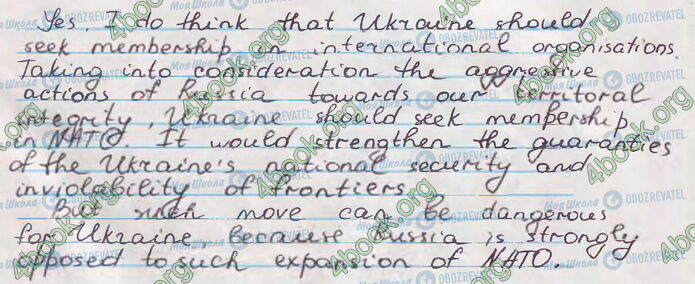 Yes, I do think that Ukraine should
seek membership in international organisations.
Taking into consideration the aggressive
actions of Russia towards our territoral
integrity, Ukraine should seek mempership
in NATO. It would strengthen the guaranties
of the Ukraine's national security and
inviolability of frontiers.
But such move can be dangerous
for Ukraine, because Russia is strongly
opposed to such expansion of NATO.
4book.org
Моя Школа
OBOZREVATEL